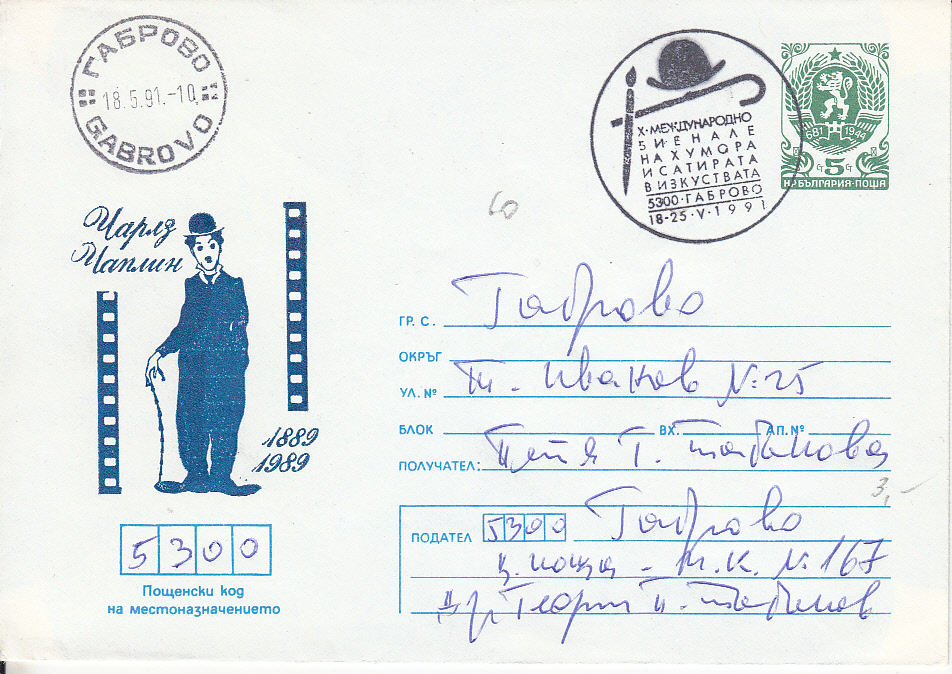 ГАБРОВО
18.5.91.-10
GABROVO
X·МЕЖДУНАРОДНО
БИЕНАЛЕ
НА ХУМОРА
И САТИРАТА
В ИЗКУСТВАТА
5300·ГАБРОВО
18-25·V·1991
681 1944
СТ 5 СТ
НР БЪЛГАРИЯ·ПОЩА
60
Чарлз
Чаплин
1889
1989
ГР. С. Габрово
ОКРЪГ
УЛ. № Т. Иванов №: 25
БЛОК ВХ. АП. №
ПОЛУЧАТЕЛ: Петя Г. Табакова
3,-
ПОДАТЕЛ 5300 Габрово
ц. поща - П.К. №: 167
Георги П. Табаков
5300
Пощенски код
на местоназначението